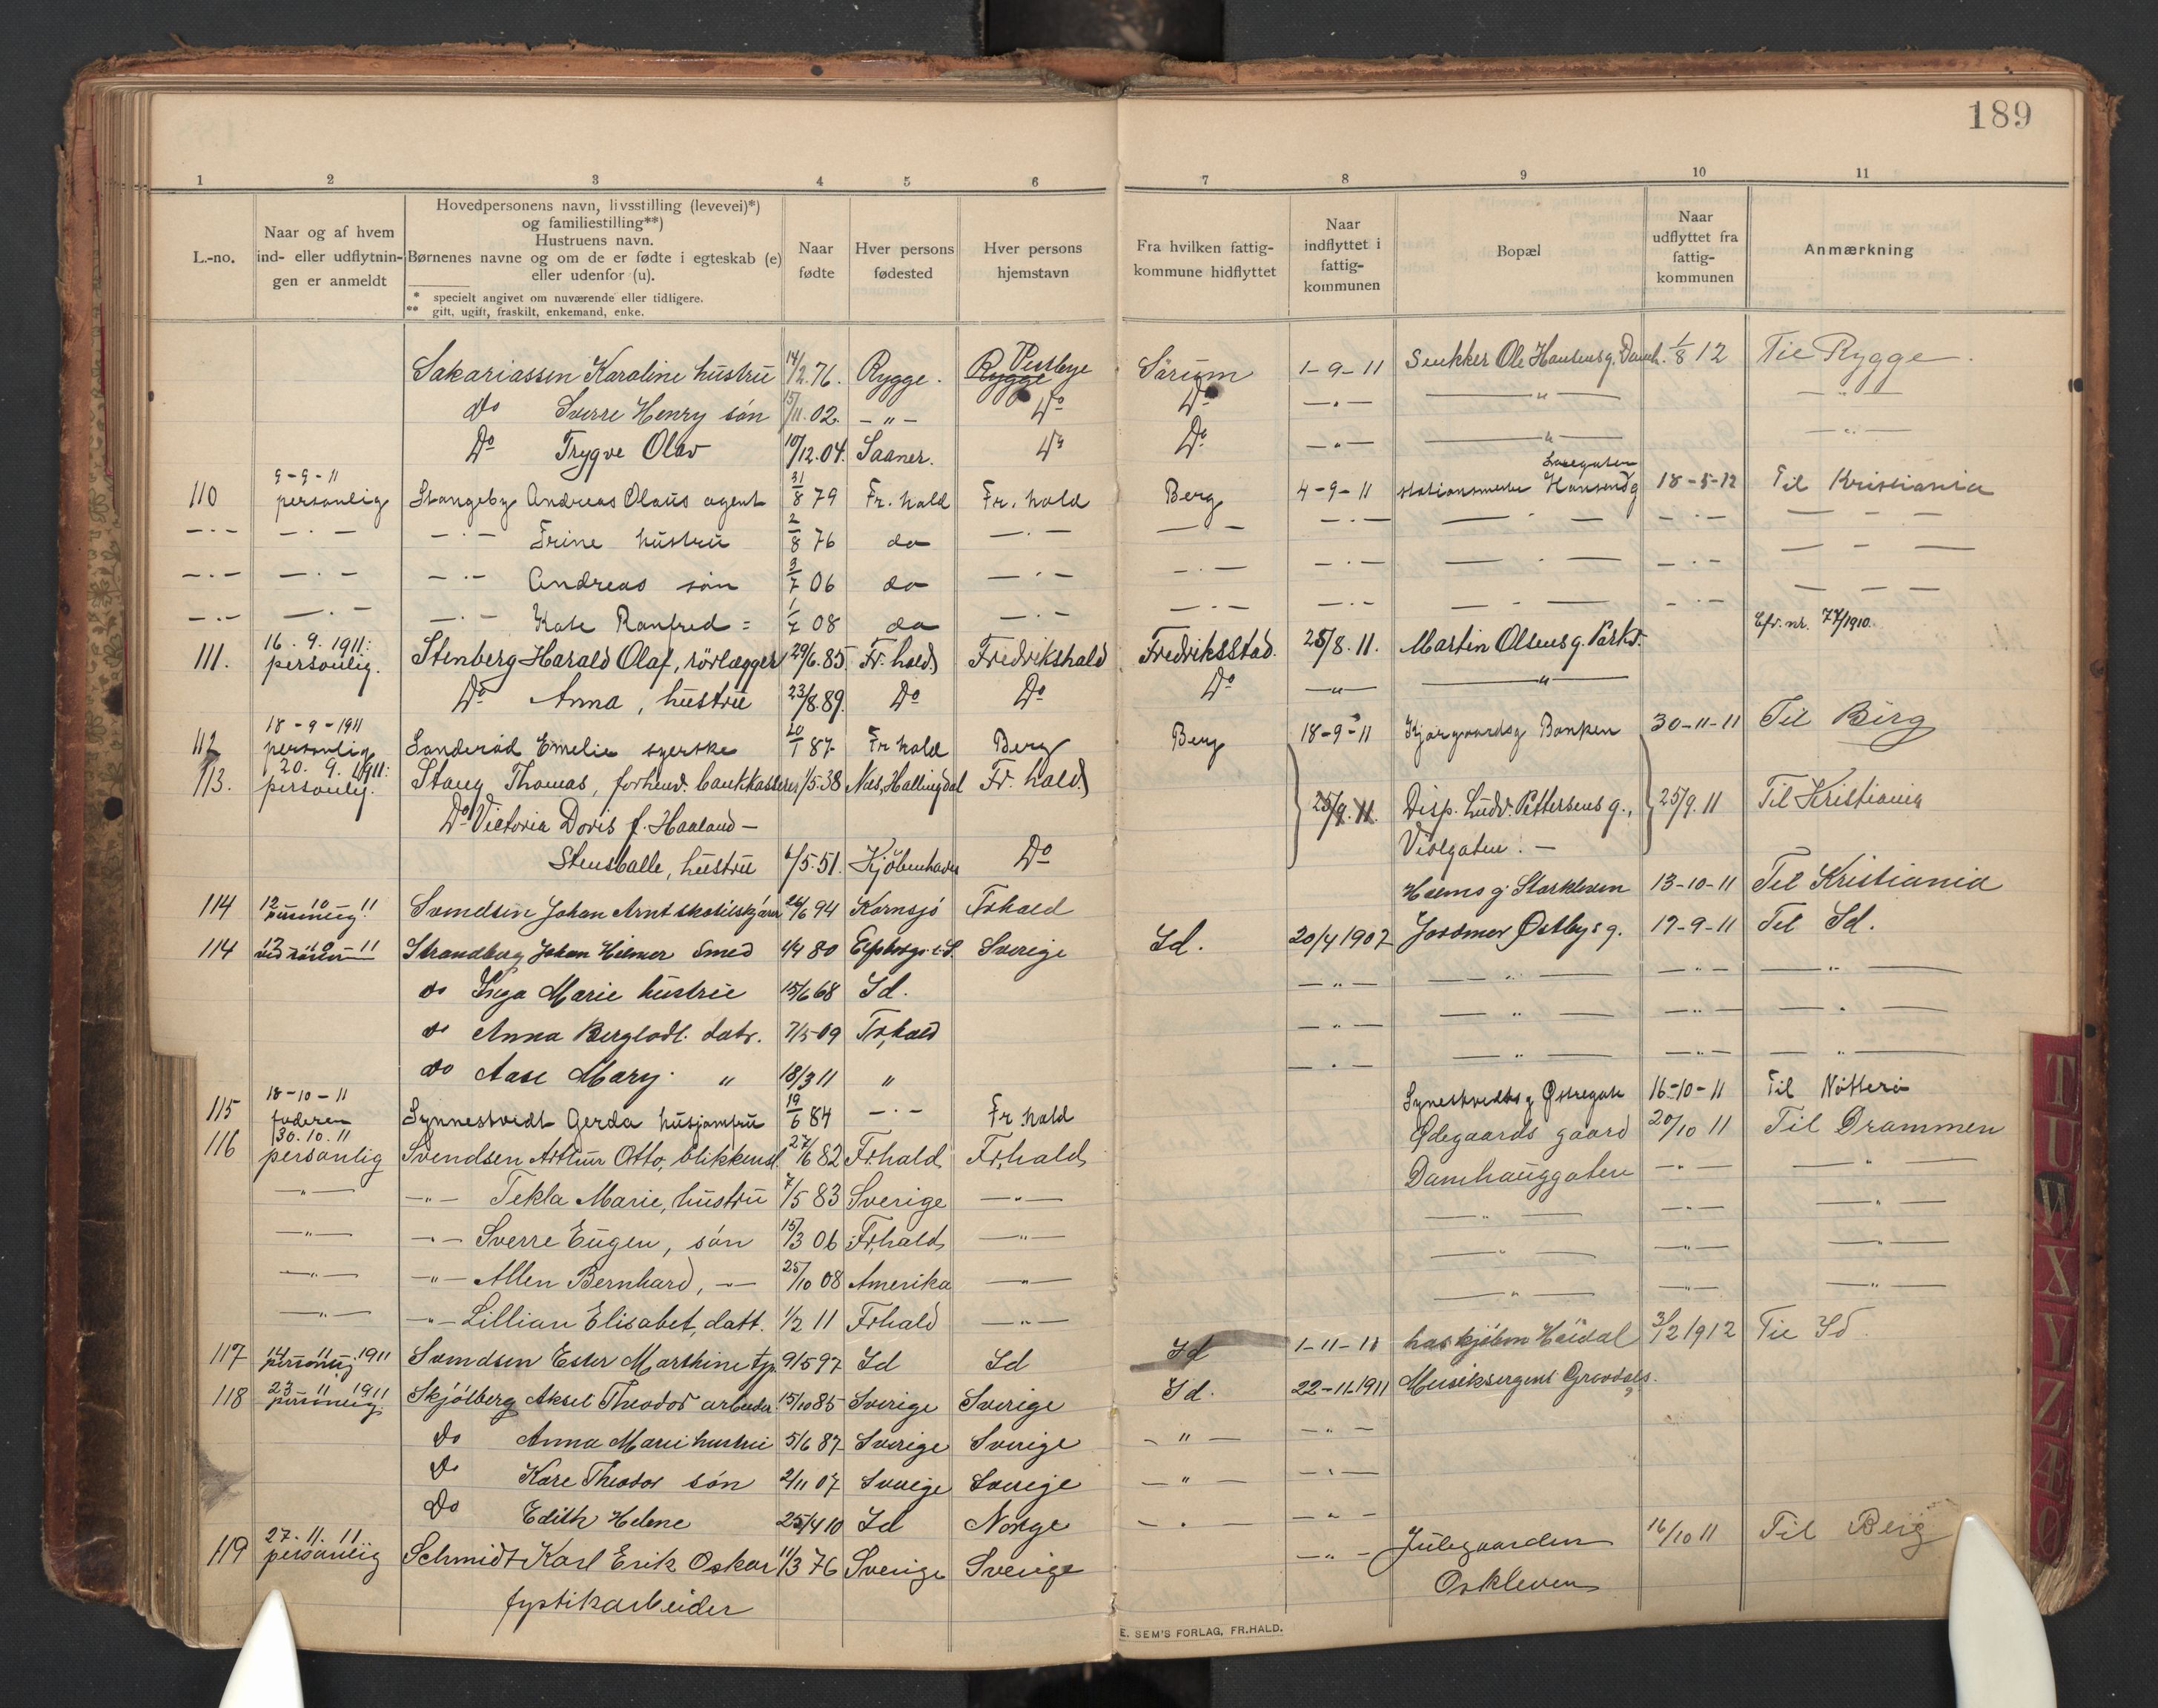 189
1 2 3 4 5 6 7 8 9 10 11
L.-no.
Naar og af hvem
ind- eller udflytnin-
gen er anmeldt
Hovedpersonens navn, livsstilling (levevei)*)
og familiestilling**)
Hustruens navn.
Børnenes navne og om de er fødte i egteskab (e)
eller udenfor (u).
* specielt angivet om nuværende eller tidligere.
** gift, ugift, fraskilt, enkemand, enke.
Naar
fødte
Hver persons
fødested
Hver persons
hjemstavn
Fra hvilken fattig-
kommune hidflyttet
Naar
indflyttet i
fattig-
kommunen
Bopæl
Naar
udflyttet fra
fattig-
kommunen
Anmærkning
Sakariassen Karoline hustru 14/2.76. Rygge. Rygge Vestbye Sørum 1-9-11 Ole Hansens g. Damh. 1/8 12 Til Rygge.
do Sverre Henry søn 15/11.02. -"- Do Do -"- -"- -"-
Do Trygve Olav 10/12.04. Saaner. Do Do -"- -"- -"-
110 9-9-11 personlig Stangeby Andreas Olaus agent 31/8 79 Fr.hald Fr.hald Berg 4-9-11 stationsmester Hansens g 18-5-12 Til Kristiania
-"- -"- -"- Trine hustru 2/8 76 do -"- -"- -"- -"- -"- -"-
-"- -"- -"- Andreas søn 3/7 06 do -"- -"- -"- -"- -"- -"-
-"- -"- -"- Kate Ranfred = 1/7 08 do -"- -"- -"- -"- -"- -"-
111. 16.9.1911: personlig. Stenberg Harald Olaf, rørlægger 29/6.85. Fr.hald Fredrikshald Fredriksstad. 25/8.11. Martin Olsens g. Parkv. Efr. nr. 77/1910.
Do Anna, hustru 23/8.89. Do Do Do -"- -"-
112 18-9-1911 personlig Sanderød Emelie syerske 20/1 87 Fr hald Berg Berg 18-9-11 Kjærgaardsg Banken 30-11-11 Til Berg
113. 20.9.1911: personlig. Stang Thomas, forhenv. bankkasserer 1/5.38 Næs, Hallingdal Fr.hald. 25/9.11. Disp. Ludv. Pettersens g., 25/9.11 Til Kristiania
Do Victoria Doris f. Haaland- Violgaten.-
Stensballe, hustru 6/5.51. Kjøbenhavn Do
114 12-10-11 personlig Svendsen Johan Arnt skotilskjærer 24/6 94 Kornsjø Frhald Holms g. Storkleven 13-10-11 Til Kristiania
114 12-10-11 Strandberg Johan Hilmer Smed 4/4 80 Elfsborgs i S. Sverige Id. 20/4 1907 Jordmor Østbys g. 17-9-11 Til Id.
do Inga Marie hustru 15/6 68 Id. -"- -"- -"- -"-
do Anna Bergliot. datr. 7/5-09 Fr.hald -"- -"- -"- -"-
do Aase Mary " 18/3 11 " -"- -"- -"- -"-
115 18-10-11 faderen Synnestvedt Gerda husjomfru 19/6 84 -"- Fr hald Synestvedts g Østregate 16-10-11 Til Nøtterø
116 30.10.11 personlig Svendsen Arthur Otto, blikkensl. 27/6 82 Fr.hald Fr.hald Ødegaards gaard 20/10 11 Til Drammen
-"- -"- Tekla Marie, hustru 7/5 83 Sverige -"- Damhauggaten -"- -"-
-"- -"- Sverre Eugen, søn 15/3 06 Fr.hald -"- -"- -"- -"-
-"- -"- Allen Bernhard, -"- 25/10 08 Amerika -"- -"- -"- -"-
-"- -"- Lillian Elisabet, datt. 1/2 11 Frhald -"- -"- -"- -"-
117 14-11-1911 personlig Svendsen Ester Marthine tjp. 9/5 97 Id Id Id 1-11-11 hos kjøbm Høidal 3/2 1912 Til Id.
118 23-11-1911 personlig. Skjølberg Aksel Theodor arbeider 15/10 85 Sverige Sverige Id. 22-11-1911 Grøndals.
Do Anna Marie hustru 5/6 87 Sverige Sverige -"- -"-
do Kare Theodor søn 2/11 07 Sverige Sverige -"- -"-
Do Edith Helene 25/4 10 Id Norge -"- -"-
119 27.11.11 personlig Schmidt Karl Erik Oskar 11/3 76 Sverige Sverige -"- Julegaarden 16/10 11 Til Berg
fystikarbeider Oskleven
E. SEM'S FORLAG, FR.HALD.
T
U
W
X
Y
Z
Æ
Ø